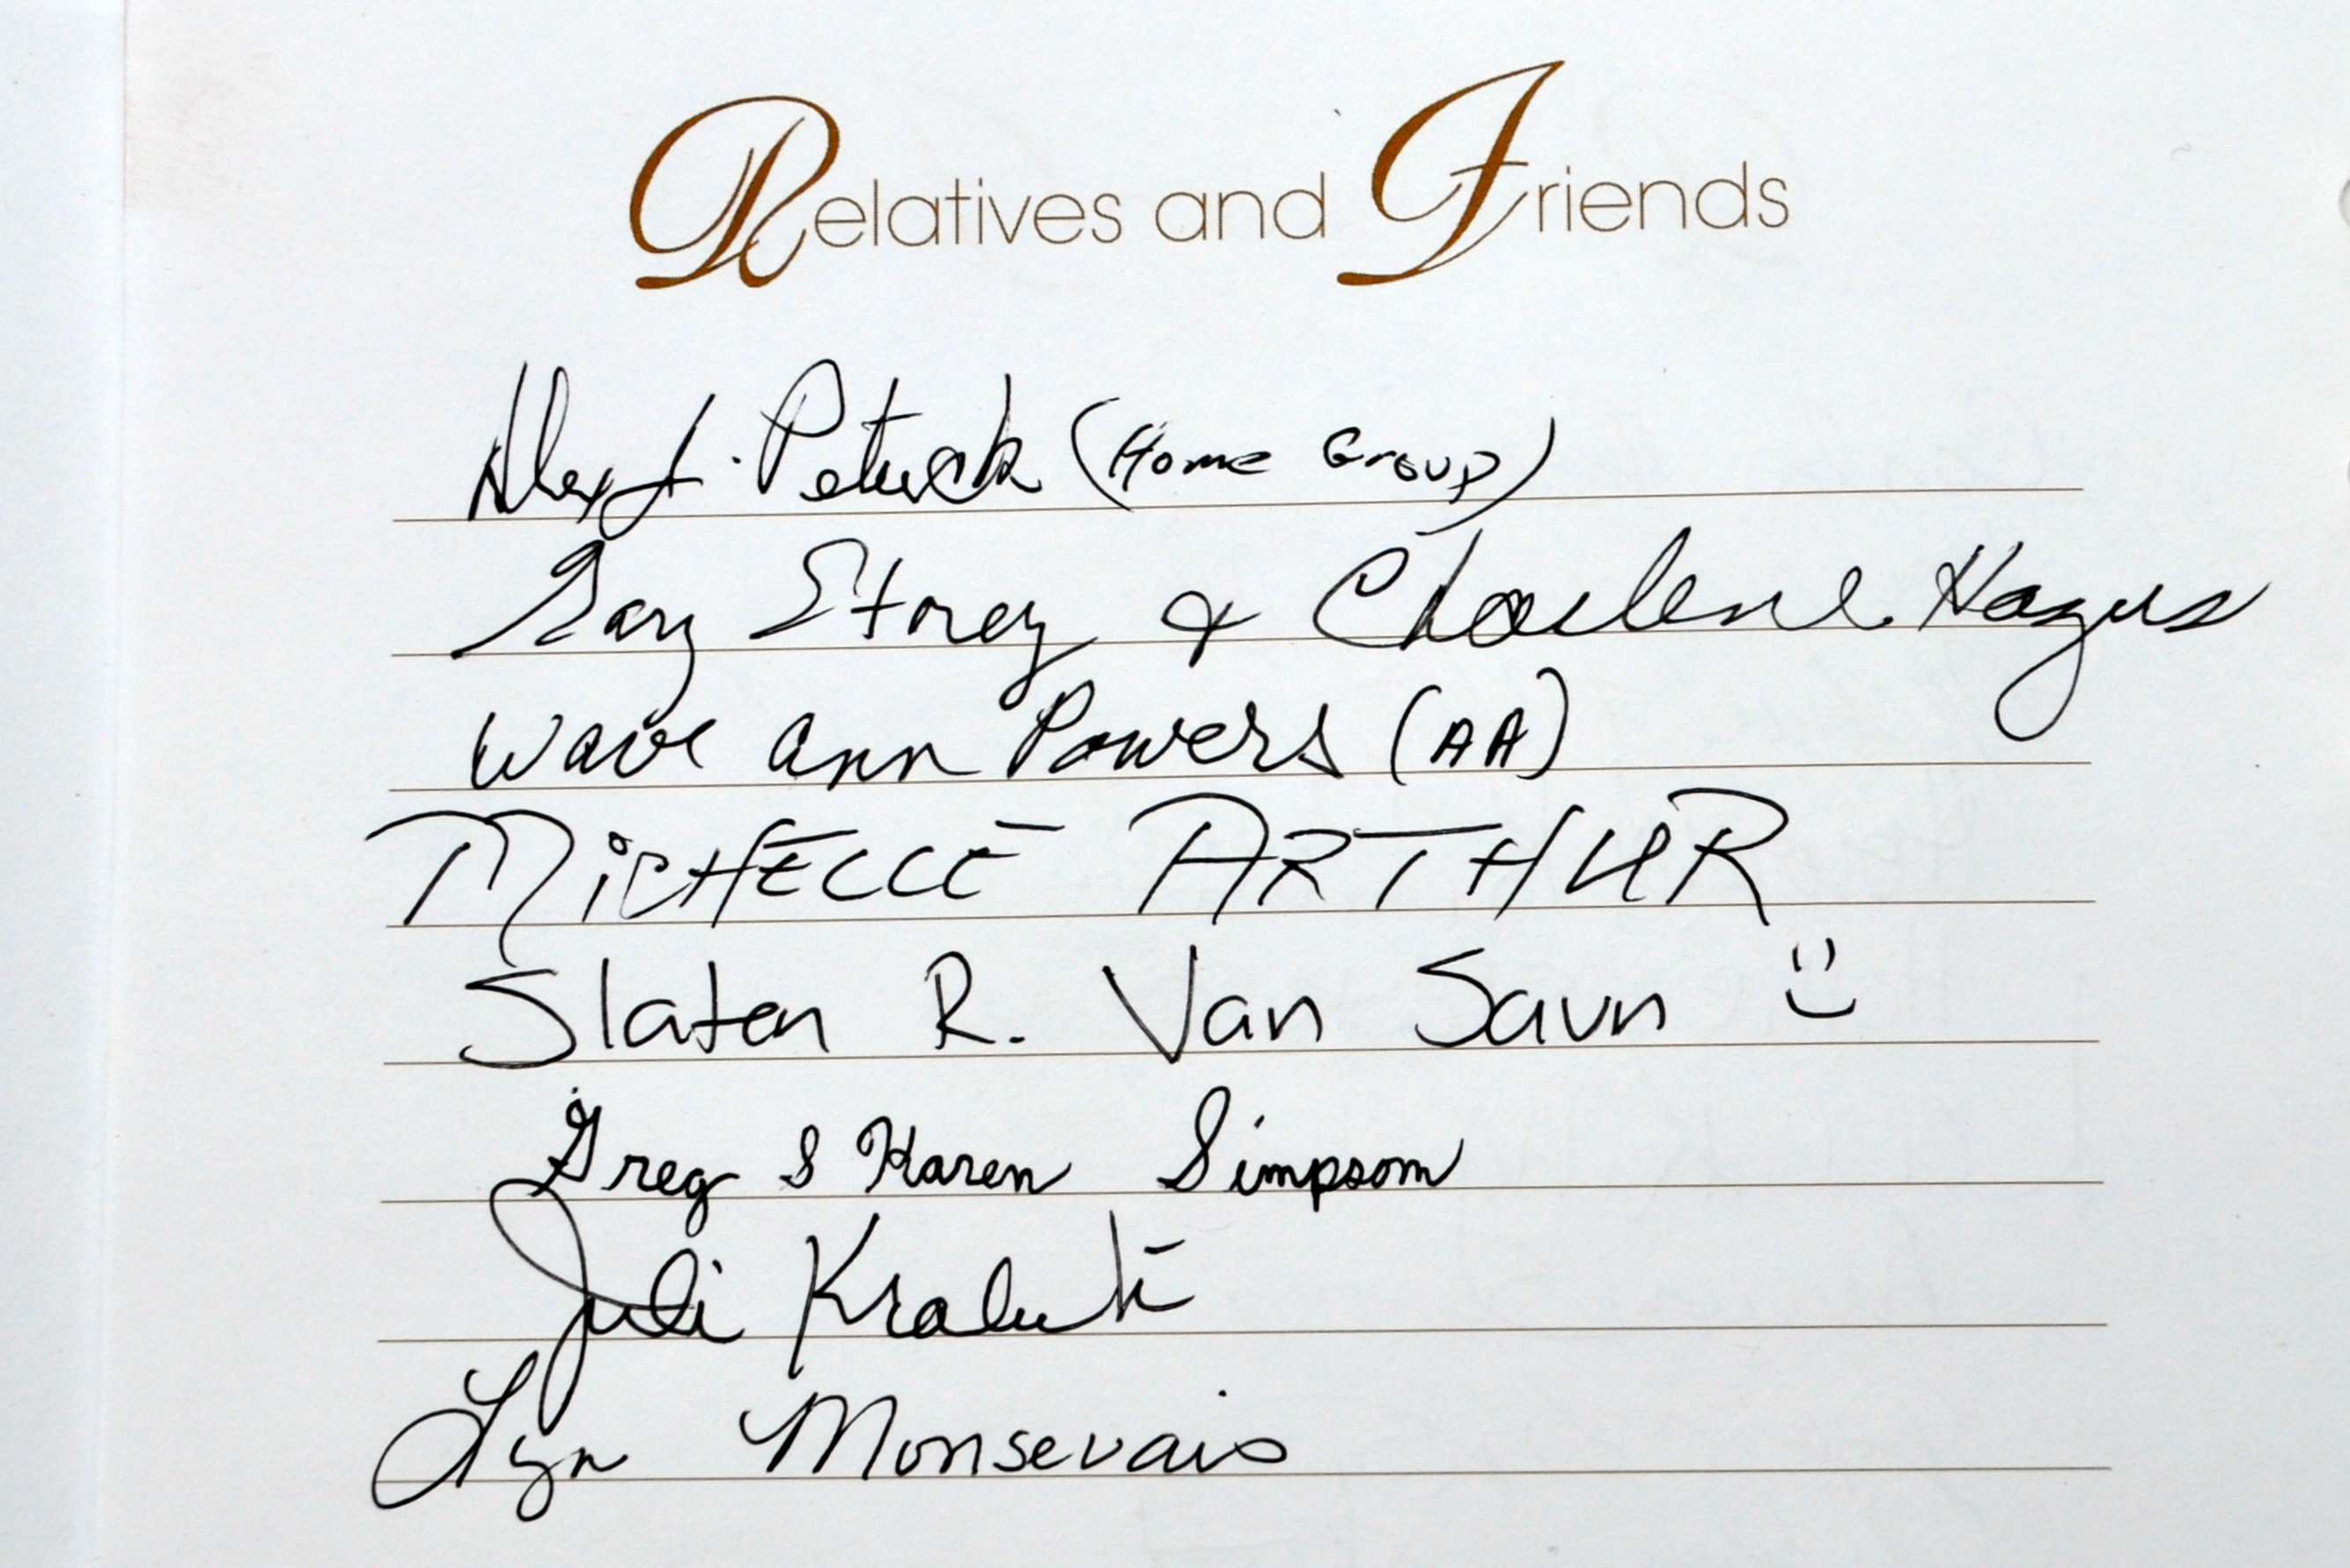 Relatives and Friends
Alex J. Petuck (Home Group)
Gary Storey & Charlene Hagus
Wave Ann Powers (AA)
MiCHELLE ARTHUR
Slaten R. Van Savn :)
Greg & Karen Simpson
Juli
Lyn Monsevais